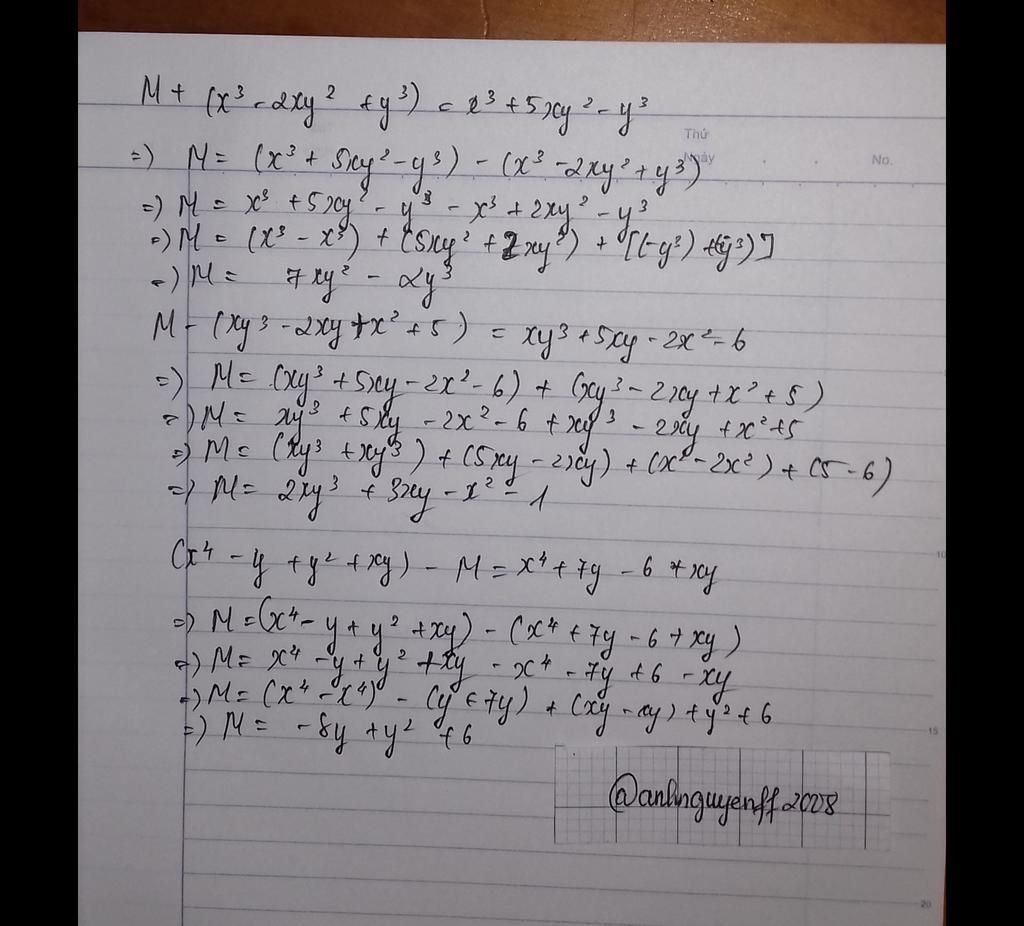 M + (x³ - 2xy² + y³) = x³ + 5xy² - y³
Thứ
Ngày No.
=) M = (x³ + 5xy² - y³) - (x³ - 2xy² + y³)
=) M = x³ + 5xy² - y³ - x³ + 2xy² - y³
=) M = (x³ - x³) + (5xy² + 2xy²) + [(-y³) + (-y³)]
=) M = 7xy² - 2y³
M - (xy³ - 2xy + x² + 5) = xy³ + 5xy - 2x² - 6
=) M = (xy³ + 5xy - 2x² - 6) + (xy³ - 2xy + x² + 5)
=) M = xy³ + 5xy - 2x² - 6 + xy³ - 2xy + x² + 5
=) M = (xy³ + xy³) + (5xy - 2xy) + (x² - 2x²) + (5 - 6)
=) M = 2xy³ + 3xy - x² - 1
10
(x⁴ - y + y² + xy) - M = x⁴ + 7y - 6 + xy
=) M = (x⁴ - y + y² + xy) - (x⁴ + 7y - 6 + xy)
=) M = x⁴ - y + y² + xy - x⁴ - 7y + 6 - xy
=) M = (x⁴ - x⁴) - (y + 7y) + (xy - xy) + y² + 6
=) M = -8y + y² + 6
15
@anhnguyenff2008
20